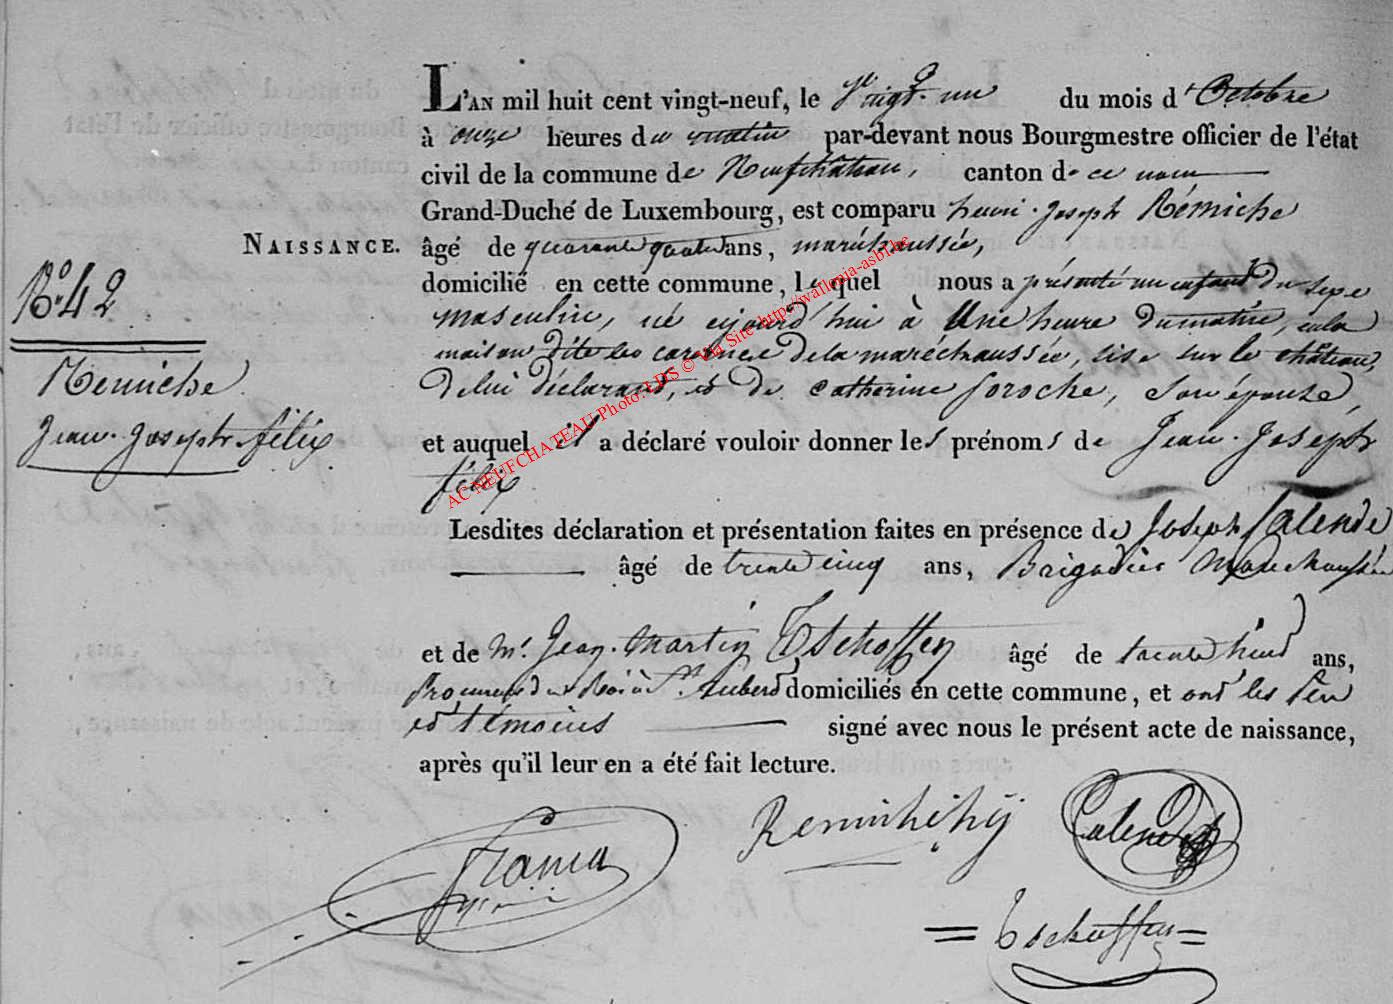 L'AN mil huit cent vingt-neuf, le Vingt-un du mois d'Octobre
à onze heures du matin par-devant nous Bourgmestre officier de l'état
civil de la commune de Neufchâteau, canton de ce nom
Grand-Duché de Luxembourg, est comparu henri-Joseph Rémiche
NAISSANCE. âgé de quarante quatre ans, maréchaussée,
N.o 42
domicilié en cette commune, lequel nous a présenté un enfant du sexe
masculin, né ejourd'hui à Une heure du matin, en la
maison dite les de la maréchaussée, sise sur le château,
Remiche
de lui déclarant, et de catherine Soroche, son épouse,
Jean-Joseph félix
et auquel il a déclaré vouloir donner les prénoms de Jean-Joseph
félix
Lesdites déclaration et présentation faites en présence de Joseph Calende
âgé de trente cinq ans, Brigadier Marechaussée
et de Mr. Jean-Martin Tschoffen âgé de trente huit ans,
Procureur du Roi à St. hubert domiciliés en cette commune, et ont les
et témoins signé avec nous le présent acte de naissance,
après qu'il leur en a été fait lecture.
Calende
Tschoffen
AC NEUFCHATEAU Photo: LDS © Via Site http://wallonia-asbl.be